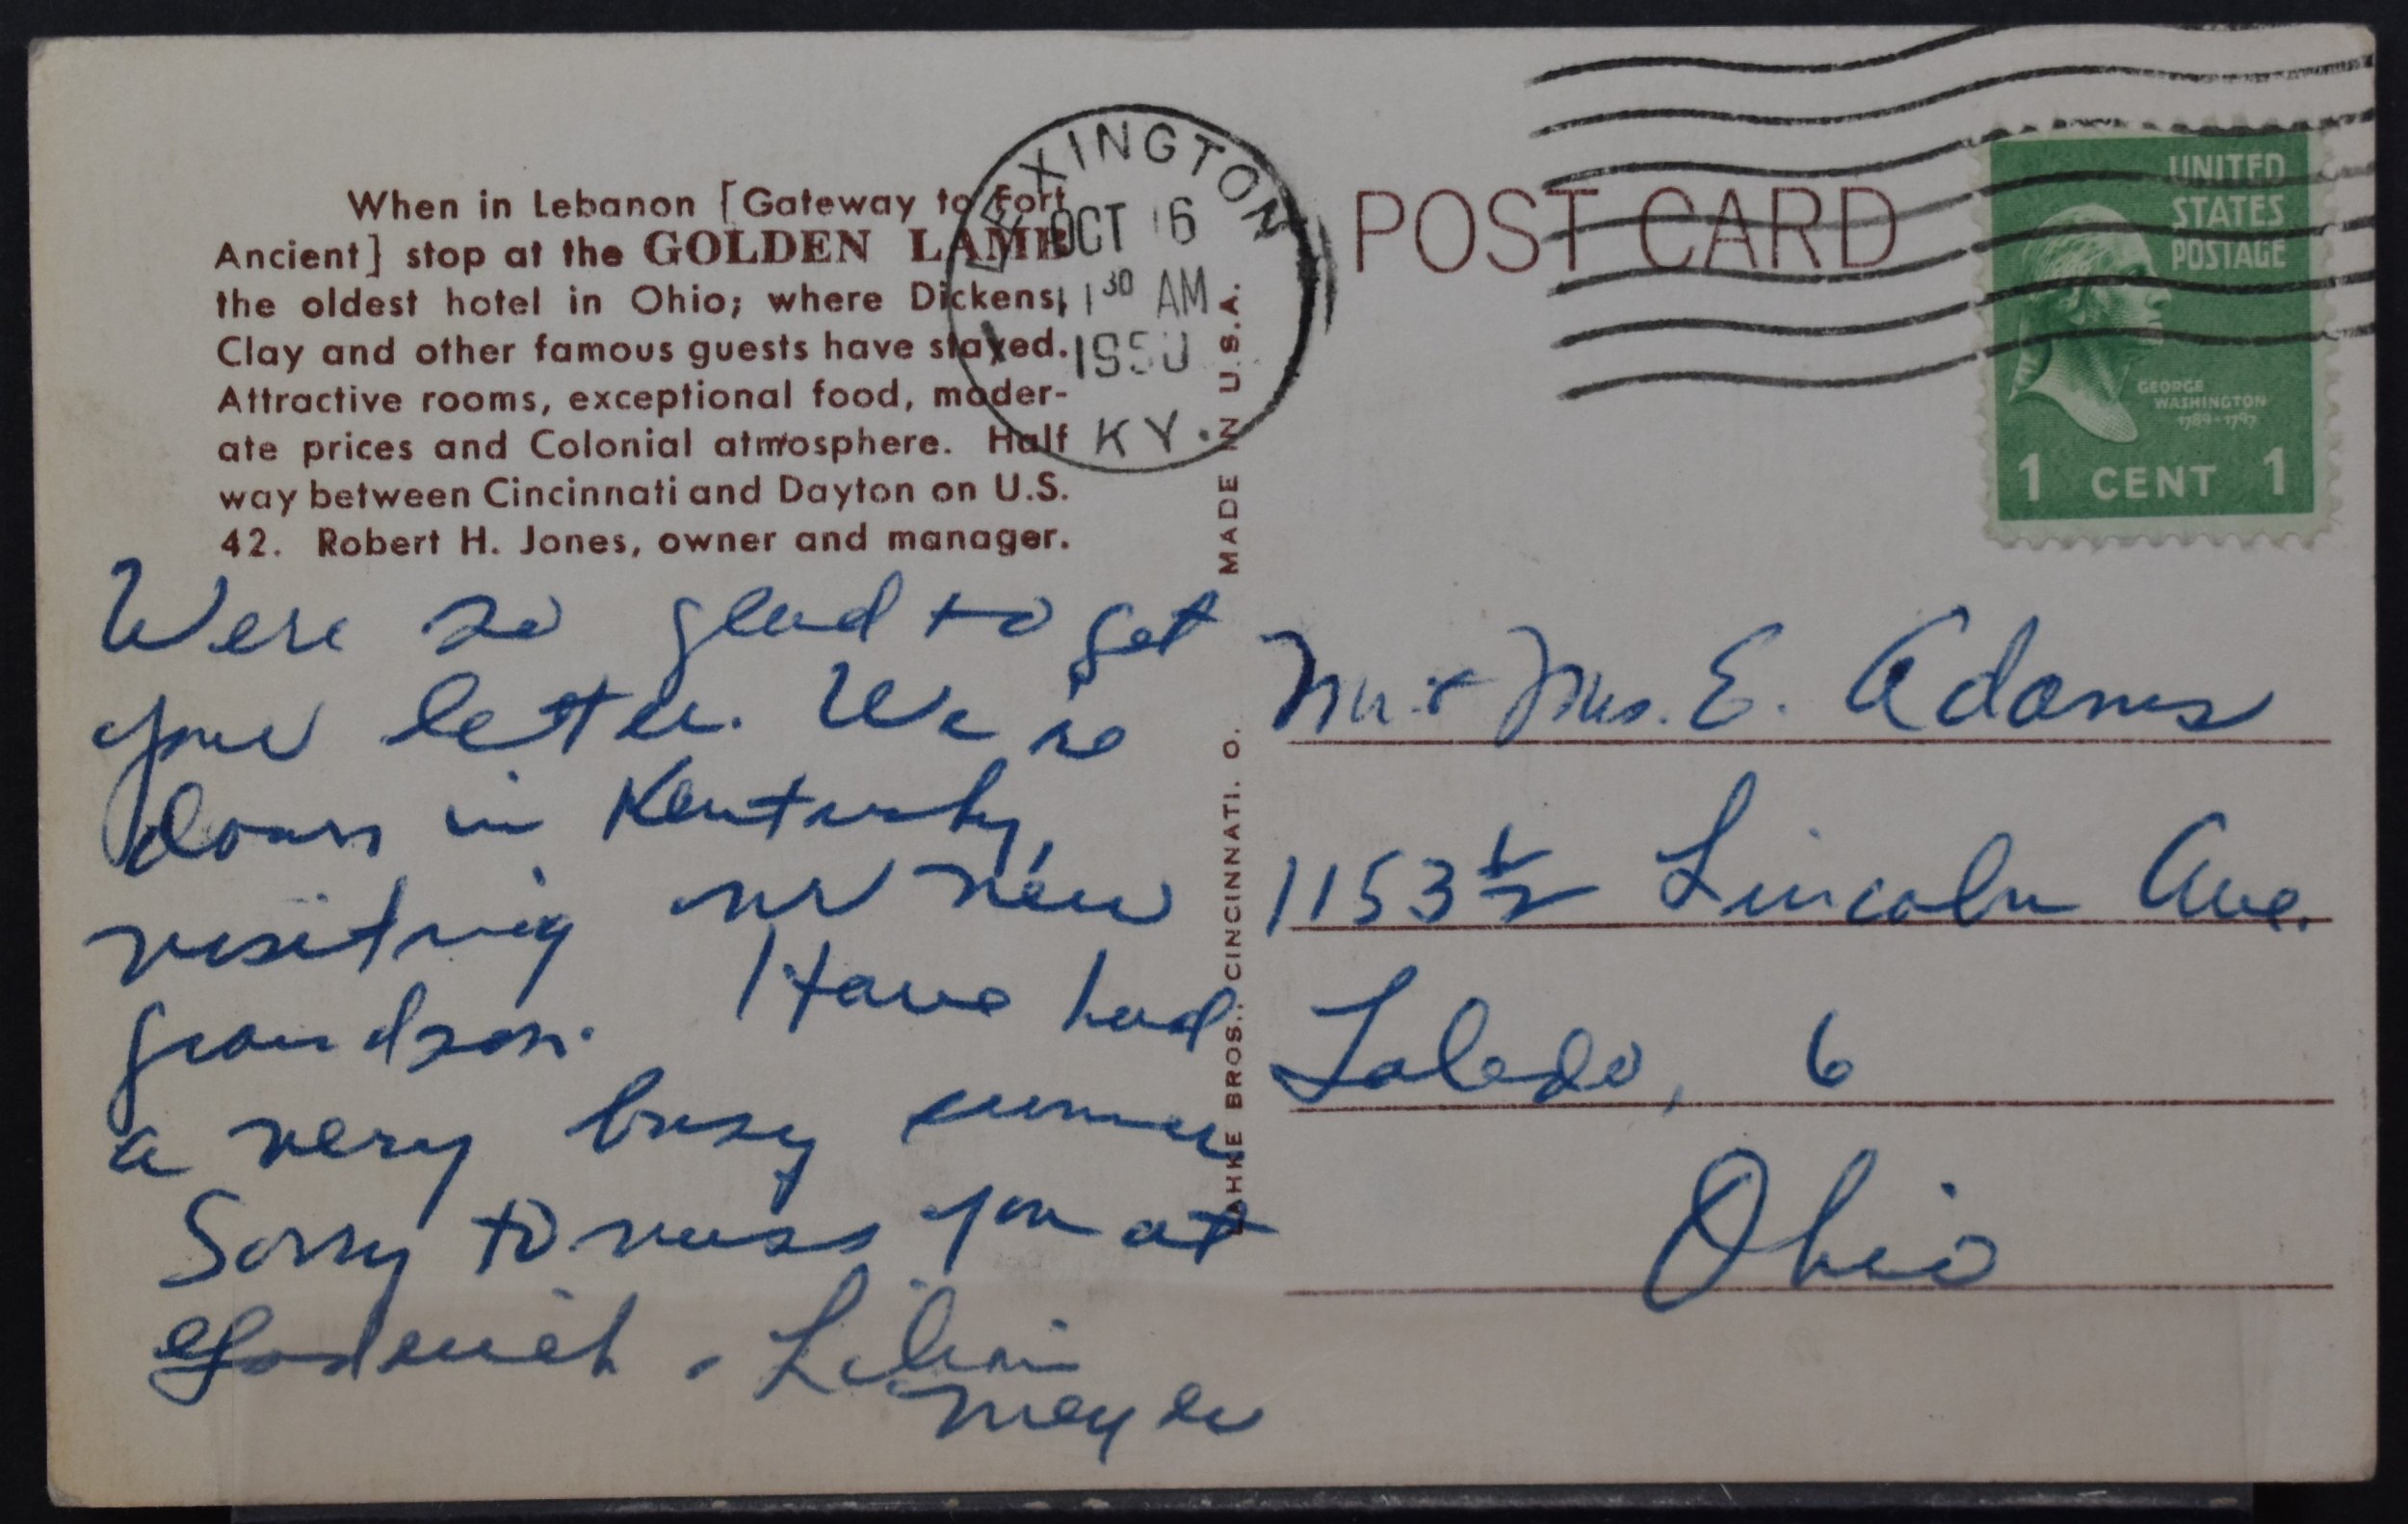 When in Lebanon [Gateway to Fort
Ancient] stop at the GOLDEN LAMB
the oldest hotel in Ohio; where Dickens,
Clay and other famous guests have stayed.
Attractive rooms, exceptional food, moder-
ate prices and Colonial atmosphere. Half
way between Cincinnati and Dayton on U.S.
42. Robert H. Jones, owner and manager.
Were so glad to get
your letter. We're
down in Kentucky,
visiting our new
grandson. Have had
a very busy summer
Sorry to miss you at
Goderich. Lilian
Meyer
LEXINGTON
OCT 16
1950
KY.
MADE IN U.S.A.
BROS., CINCINNATI. O.
POST CARD
UNITED
STATES
POSTAGE
GEORGE
WASHINGTON
1789-1797
1 CENT 1
Mr. & Mrs. E. Adams
1153 1/2 Lincoln Ave.
Toledo, 6
Ohio